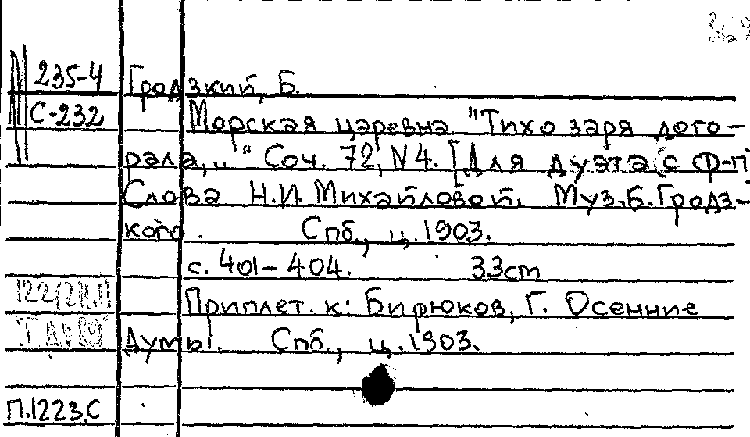 235-4 Гродзкий, Б.
С-232 Морская царевна "Тихо заря дого-
рала,.." Соч. 72, N 4. [Для дуэта с ф-п]
Слова Н.И. Михайловой. Муз. Б. Гродз-
кого. Спб., ц. 1903.
с. 401-404. 33cm
Приплет. к: Бирюков, Г. Осенние
думы. Спб., ц. 1903.
П.1223.С